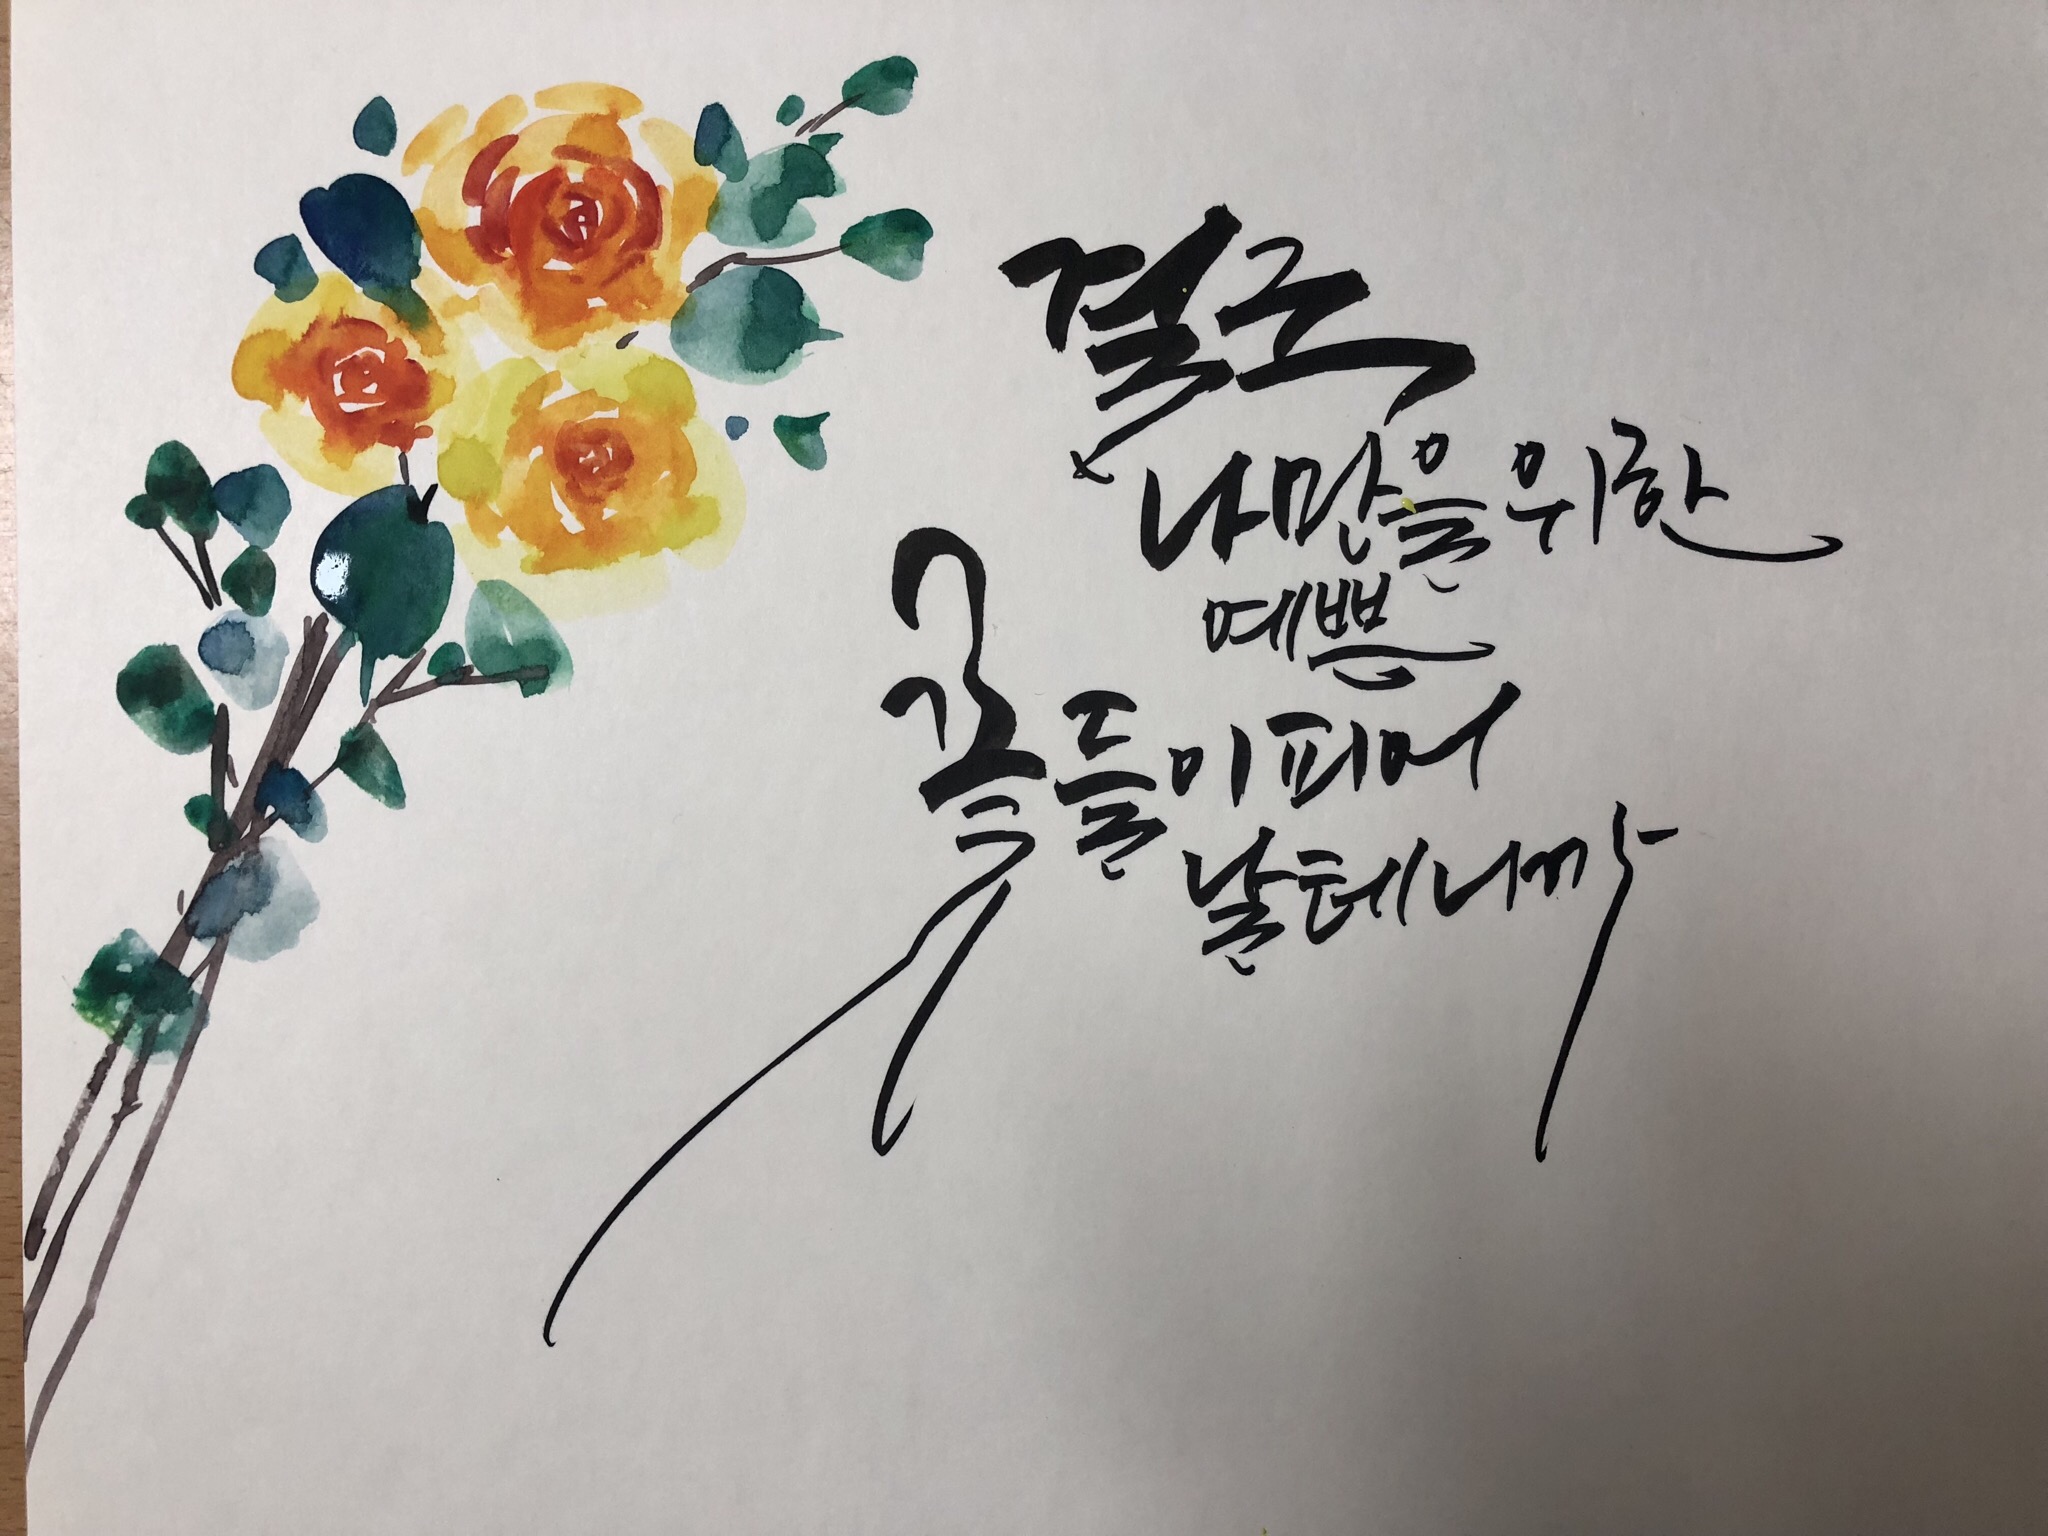 결국
나만을 위한
예쁜
꽃들이 피어
날테니까